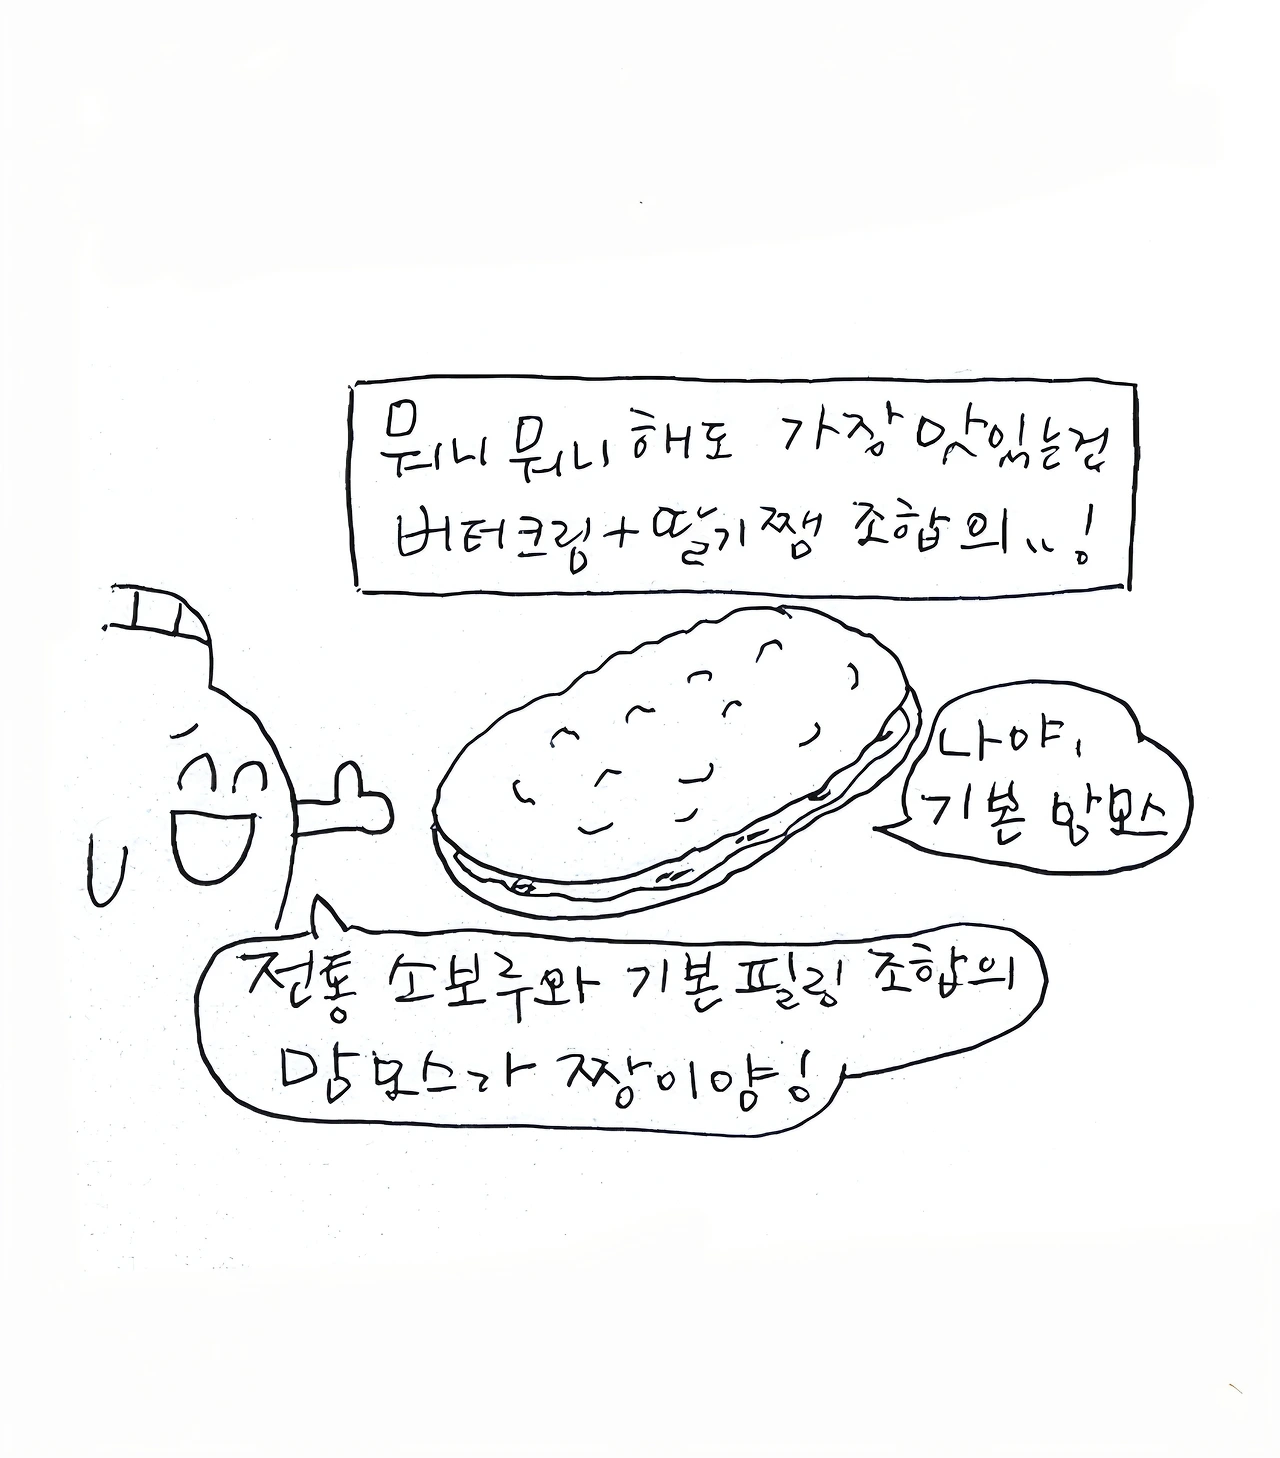 뭐니뭐니해도 가장 맛있는건
버터크림+딸기쨈 조합의..!
나야,
기본 맘모스
전통 소보루와 기본필링 조합의
맘모스가 짱이양!